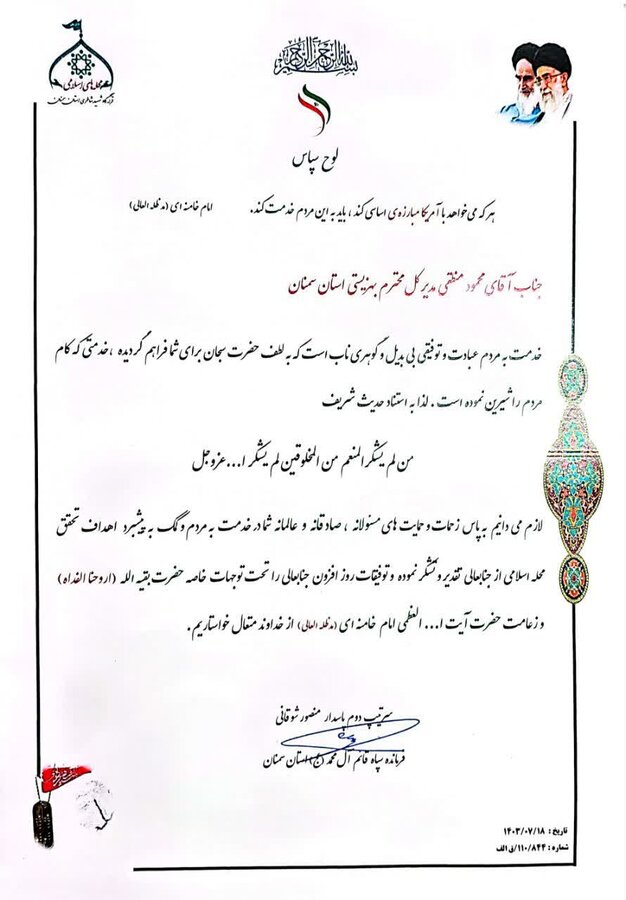 بسم الله الرحمن الرحیم
محله های اسلامی
قرارگاه شهید شاطری استان سمنان
لوح سپاس
هر که می خواهد با آمریکا مبارزه ی اساسی کند ، باید به این مردم خدمت کند. امام خامنه ای (مد ظله العالی)
جناب آقای محمود منفقی مدیر کل محترم بهزیستی استان سمنان
خدمت به مردم عبادت و توفیقی بی بدیل و گوهری ناب است که به لطف حضرت سبحان برای شما فراهم گردیده ، خدمتی که کام
مردم را شیرین نموده است . لذا به استناد حدیث شریف
من لم یشکر المنعم من المخلوقین لم یشکر ا... عزوجل
لازم می دانیم به پاس زحمات و حمایت های مسئولانه ، صادقانه و عالمانه شما در خدمت به مردم و کمک به پیشبرد اهداف تحقق
محله اسلامی از جنابعالی تقدیر و تشکر نموده و توفیقات روز افزون جنابعالی را تحت توجهات خاصه حضرت بقیه الله (ارواحنا الفداه)
و زعامت حضرت آیت ا... العظمی امام خامنه ای (مدظله العالی) از خداوند متعال خواستاریم .
سرتیپ دوم پاسدار منصور شوقانی
فرمانده سپاه قائم آل محمد (عج) استان سمنان
تاریخ : ۱۴۰۳/۰۷/۱۸
شماره : ۱۱۰/۸۴۴/ق الف